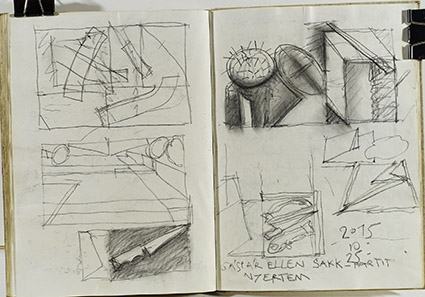 2015
10
25
GÁSPÁR ELLEN SAKK-PARTIT
NYERTEM